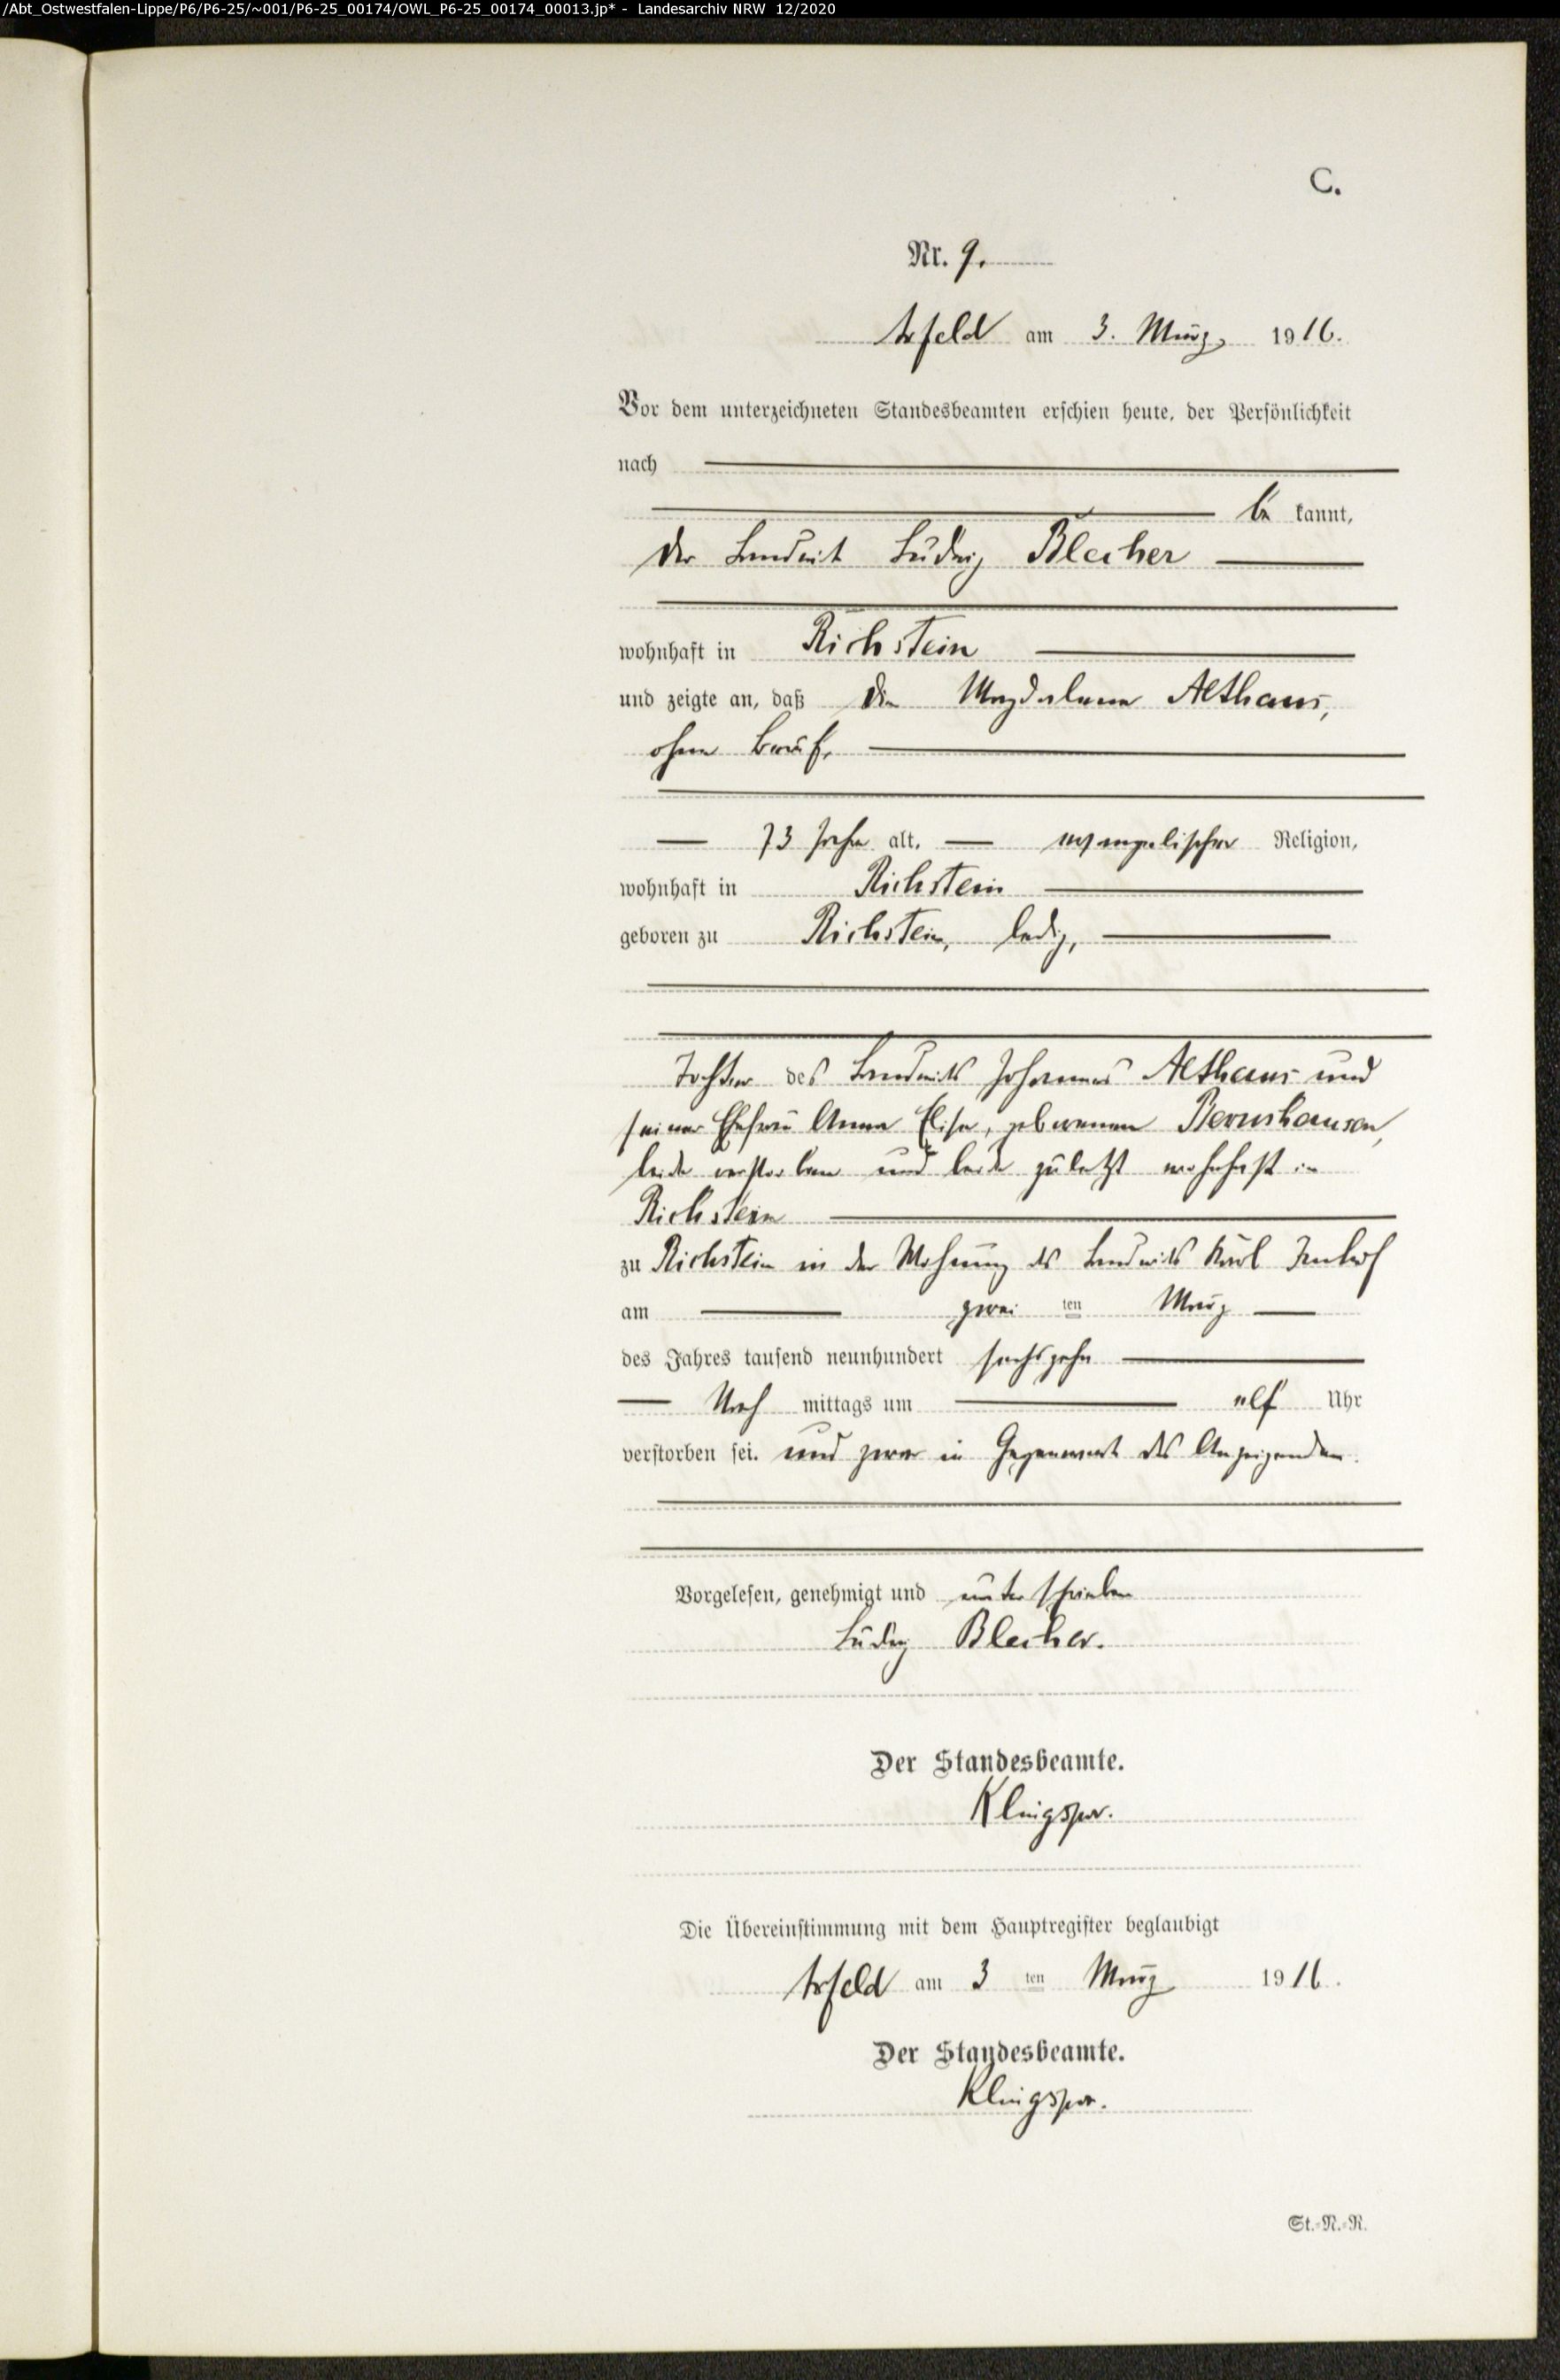 /Abt_Ostwestfalen-Lippe/P6/P6-25/~001/P6-25_00174/OWL_P6-25_00174_00013.jp* - Landesarchiv NRW 12/2020
C.
Nr. 9.
Arfeld am 3. März 1916.
Vor dem unterzeichneten Standesbeamten erschien heute, der Persönlichkeit
nach
be kannt,
der Landwirt Ludwig Blecher
wohnhaft in Richstein
und zeigte an, daß die Magdalena Althaus,
ohne Beruf,
73 Jahre alt, evangelischer Religion,
wohnhaft in Richstein
geboren zu Richstein, ledig,
Tochter des Landwirts Johannes Althaus und
seiner Ehefrau Anna Elise, geborenen Bernshausen,
beide verstorben und beide zuletzt wohnhaft in
Richstein
zu Richstein in der Wohnung des Landwirts Karl Imhof
am zwei ten März
des Jahres tausend neunhundert sechszehn
Nach mittags um elf Uhr
verstorben sei. und zwar in Gegenwart des Anzeigenden.
Vorgelesen, genehmigt und unterschrieben
Ludwig Blecher.
Der Standesbeamte.
Klingspor.
Die Übereinstimmung mit dem Hauptregister beglaubigt
Arfeld am 3 ten März 1916.
Der Standesbeamte.
Klingspor.
St.-N.-R.